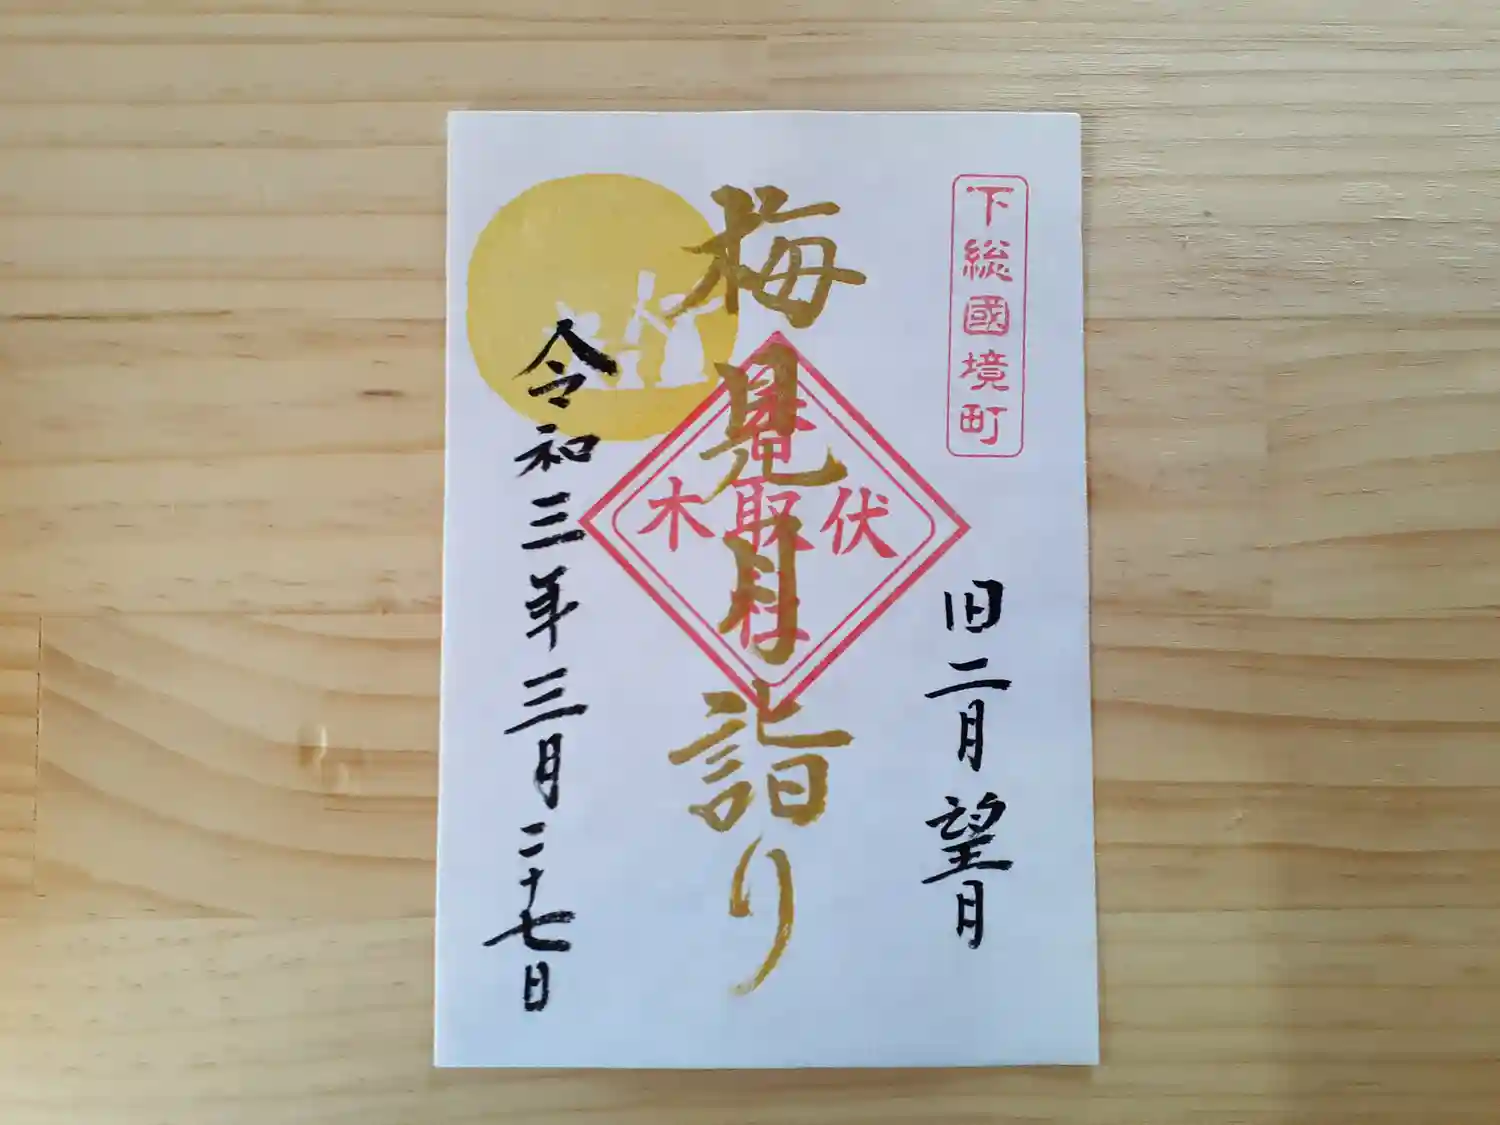 下総國境町
旧二月望月
梅見月詣り
香取社
伏木
令和三年三月二十七日